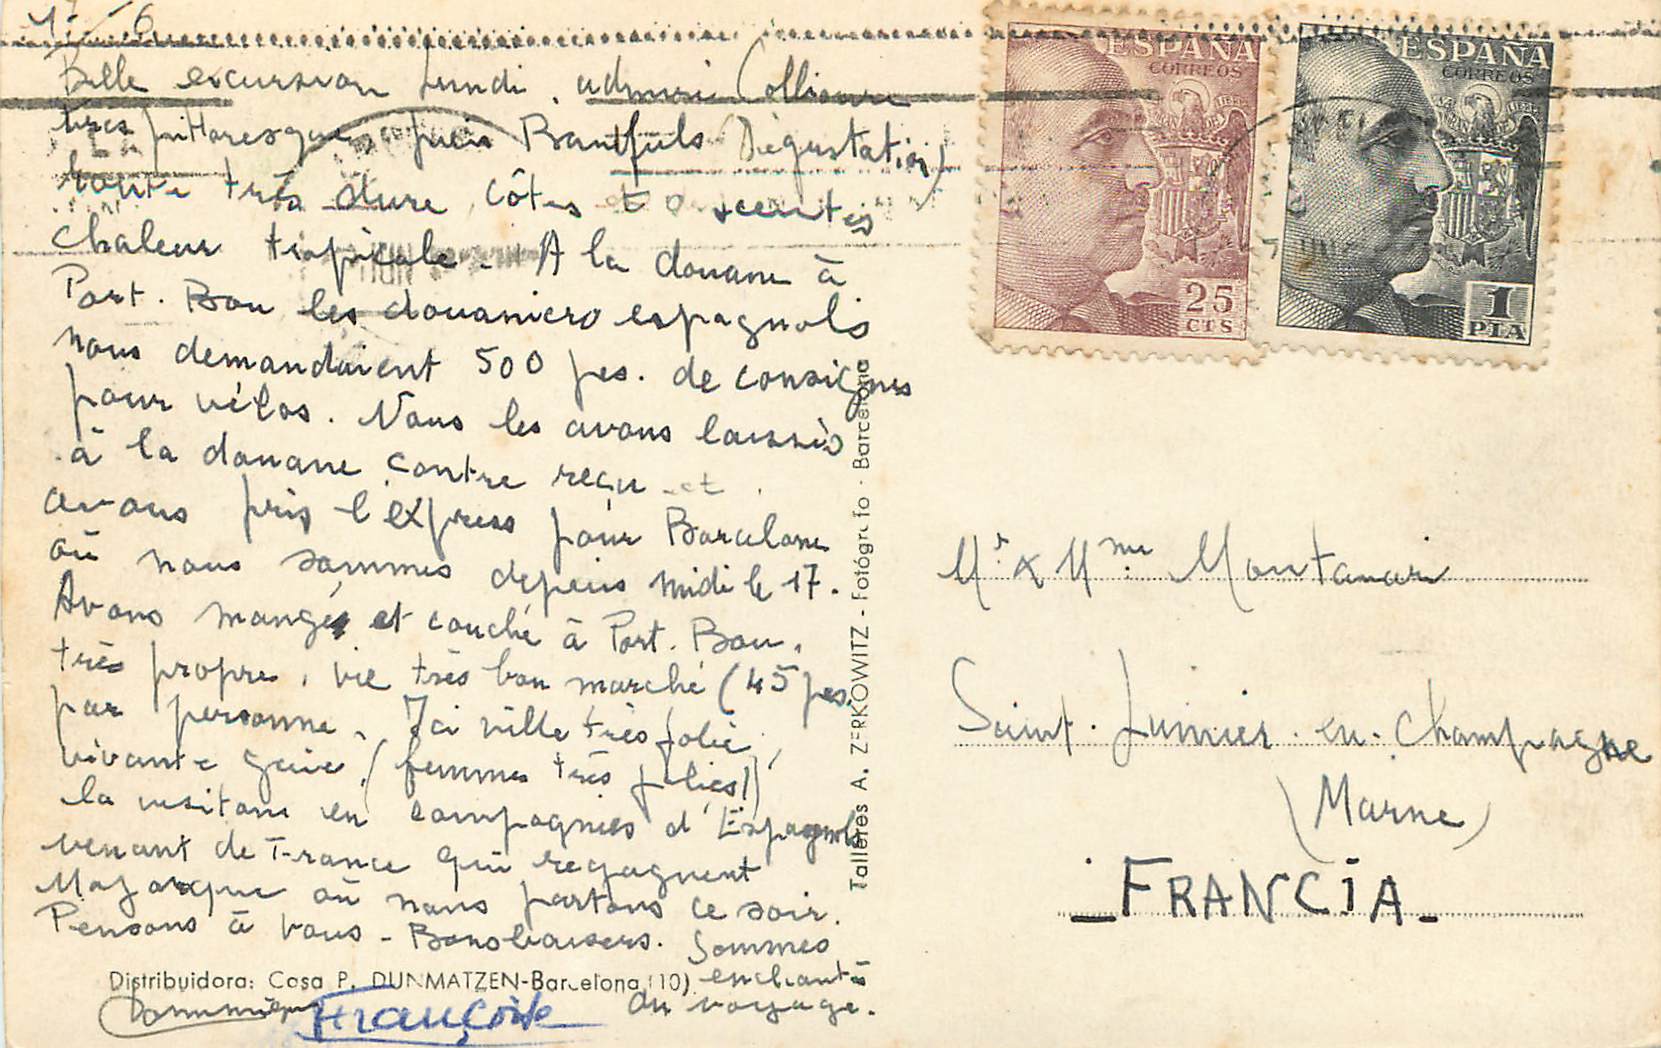 Belle excursion Lundi. admiré Collioure
très pittoresque, puis Banyuls (Dégustation)
route très dure, côtes descentes
chaleur tropicale. A la douane à
Port. Bou les douaniers espagnols
nous demandaient 500 pes. de consignes
pour vélos. Nous les avons laissés
à la douane contre reçu et
avons pris l'express pour Barcelone
où nous sommes depuis midi le 17.
Avons mangé et couché à Port. Bou.
très propre, vie très bon marché (45 pes.
par personne. Ici ville très jolie,
vivante gaie, (femmes très jolies!)
la visitons en compagnies d'Espagnols
venant de France qui regagnent
Majorque où nous partons ce soir.
Pensons à vous - Bons baisers. Sommes
enchantés
du voyage.
Dominique Françoise
Distribuidora: Casa P. DUNMATZEN-Barcelona (10)
Talleres A. ZERKOWITZ - Fotógrafo - Barcelona
ESPAÑA
CORREOS
25
CTS
ESPAÑA
CORREOS
1
PTA
Mr. & Mme. Montanari
Saint. Lumier. en. Champagne
(Marne)
_ FRANCIA _